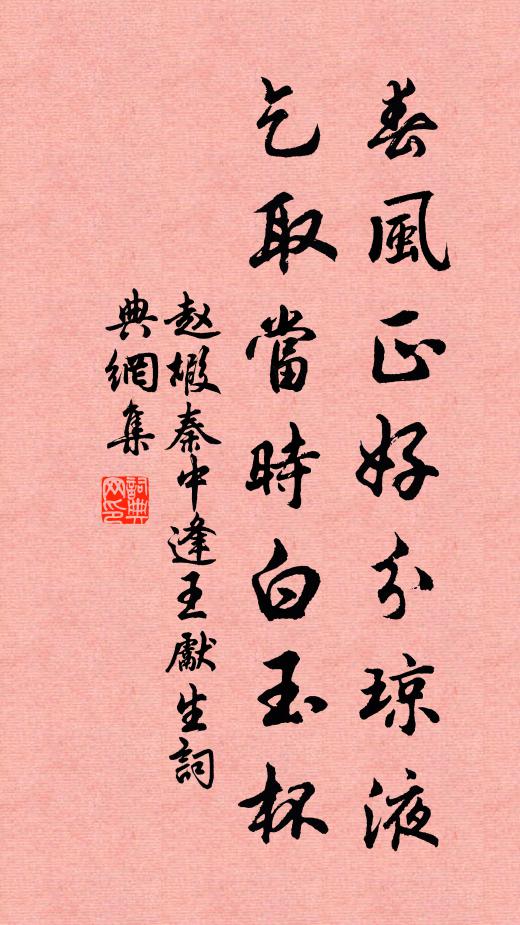 春風正好分瓊液
乞取當時白玉杯
赵嘏秦中逢王處生詞
典網集
詞典
网印